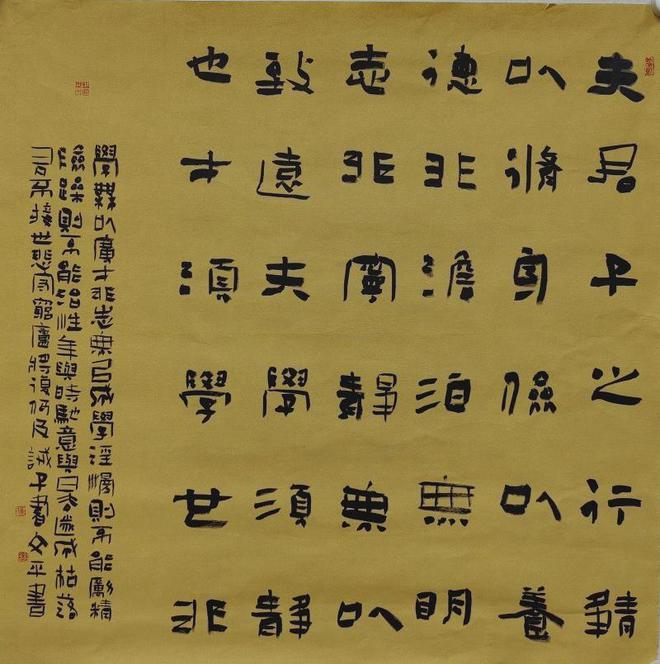 夫君子之行靜
以脩身儉以養
德非澹泊無明
志非寧靜無以
致遠夫學須靜
也才須學世非
學無以廣才非志無以成學淫慢則不能勵精
險躁則不能治性年與時馳意與日去遂成枯落
多不接世悲守窮廬將復何及誡子書文平書